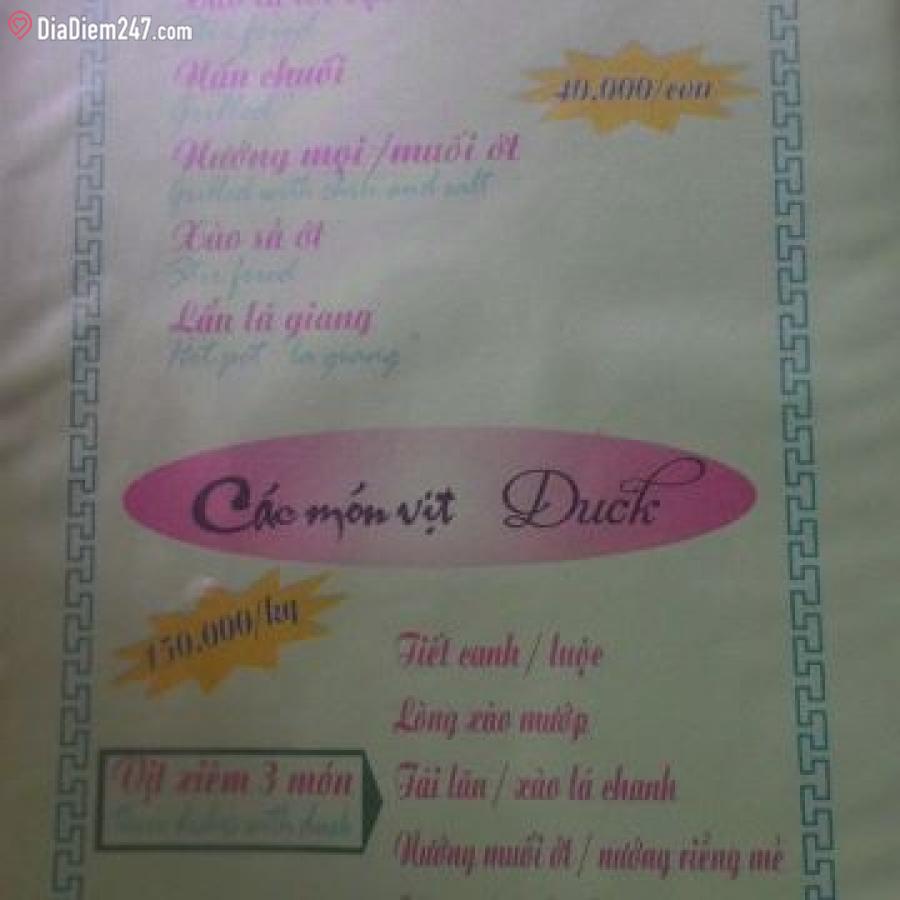 DiaDiem247.com
Nấu chuối
Grilled
40.000/con
Nướng mọi/muối ớt
Grilled with chili and salt
Xào sả ớt
Lẩu lá giang
Hot pot "la giang"
Các món vịt Duck
150.000/kg
Tiết canh / luộc
Lòng xào mướp
Vịt xiêm 3 món
Tái lăn / xào lá chanh
with duck
Nướng muối ớt / nướng riềng mẻ